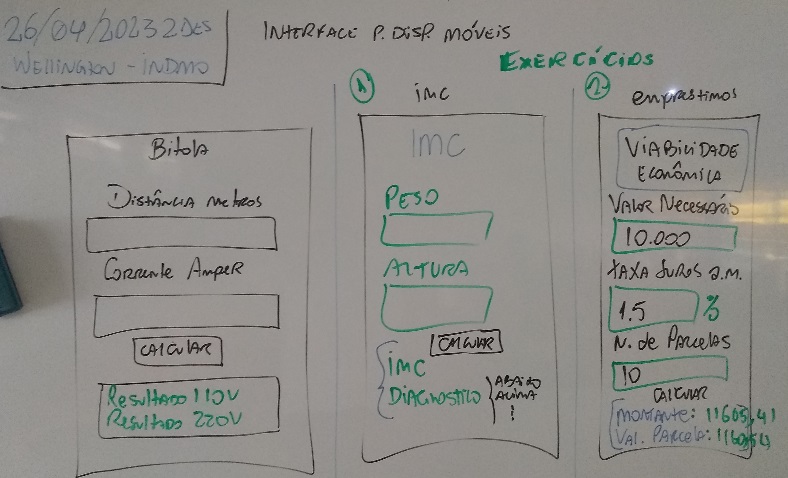 26/04/2023 2DES
WELLINGTON - INDMO
INTERFACE P. DISP. MÓVEIS
EXERCÍCIOS
Bitola
Distância metros
Corrente Amper
CALCULAR
Resultado 110V
Resultado 220V
1)
imc
IMC
PESO
ALTURA
CALCULAR
IMC
DIAGNOSTICO
ABAIXO
ACIMA
!
2-
emprastimos
VIABILIDADE
ECONÔMICA
VALOR NECESSÁRIO
10.000
TAXA JUROS a.m.
1.5 %
N. de PARCELAS
10
CALCULAR
MONTANTE: 11605,41
VAL. PARCELA: 1160,54